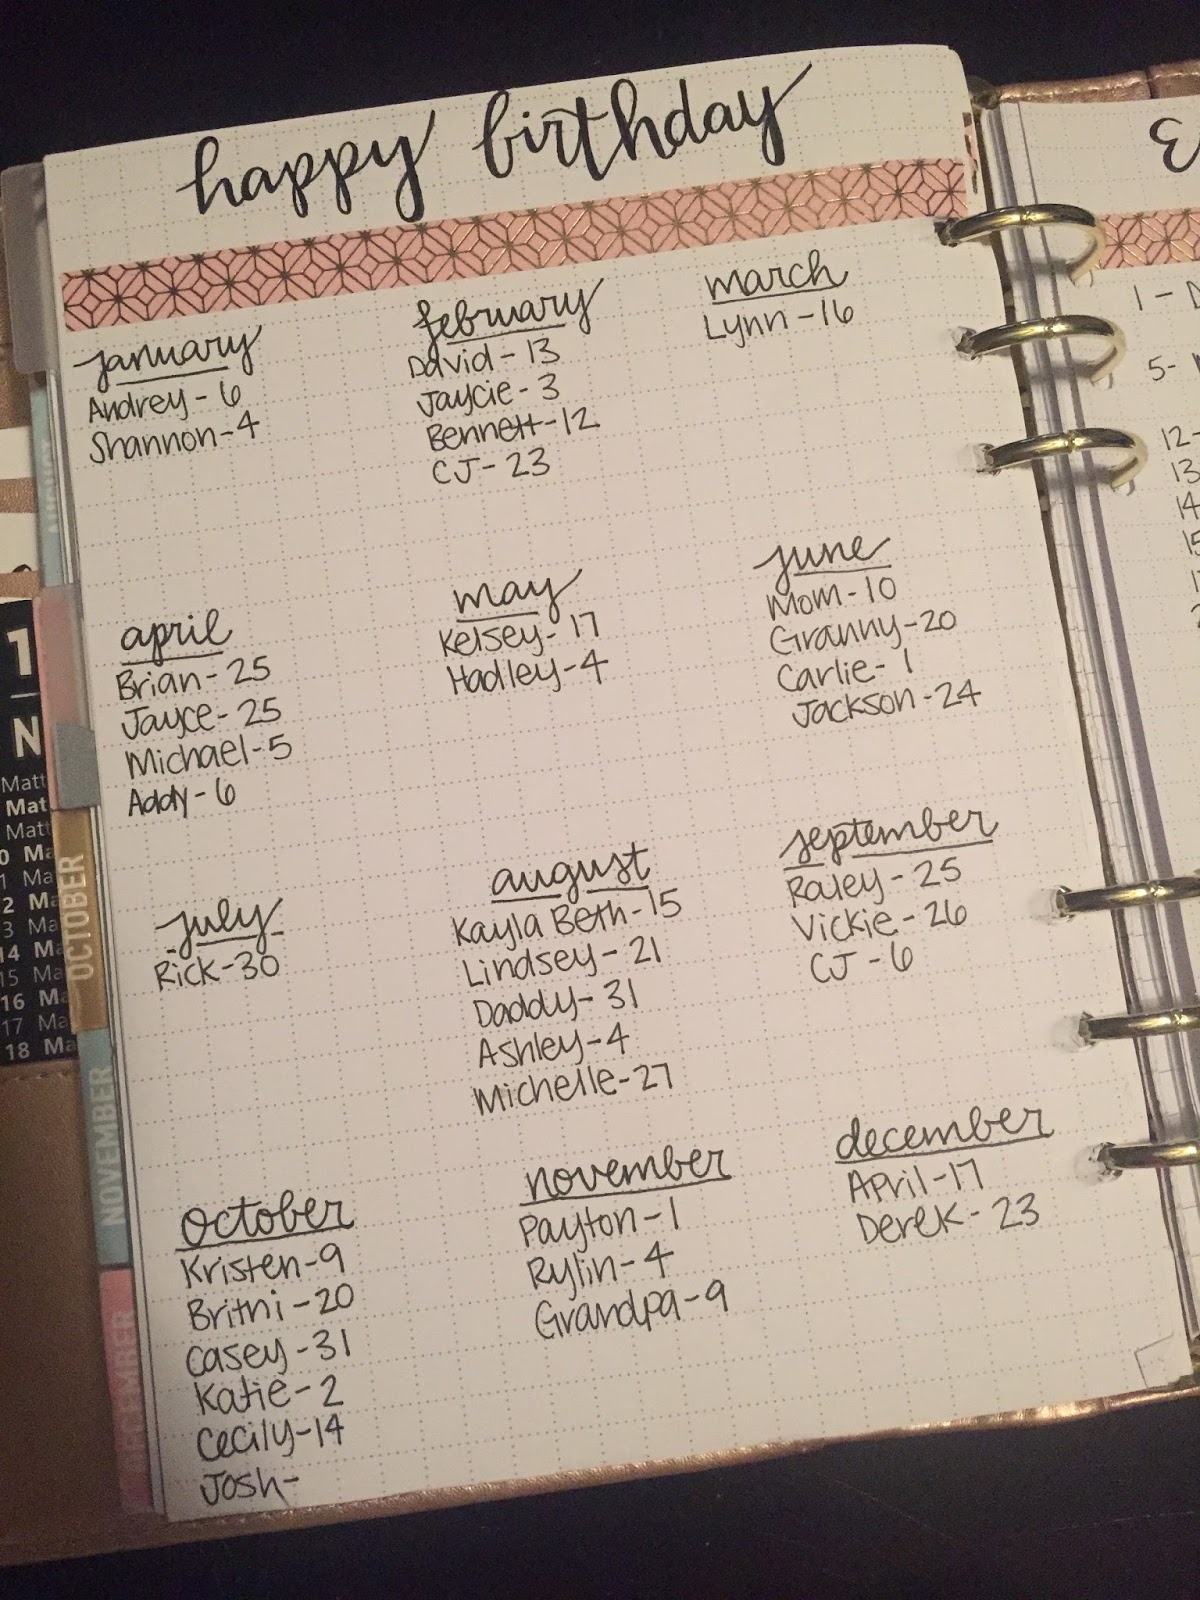 happy birthday
january
Audrey - 6
Shannon - 4
february
David - 13
Jaycie - 3
Bennett - 12
CJ - 23
march
Lynn - 16
april
Brian - 25
Jayce - 25
Michael - 5
Addy - 6
may
Kelsey - 17
Hadley - 4
june
Mom - 10
Granny - 20
Carlie - 1
Jackson - 24
july
Rick - 30
august
Kayla Beth - 15
Lindsey - 21
Daddy - 31
Ashley - 4
Michelle - 27
september
Raley - 25
Vickie - 26
CJ - 6
october
Kristen - 9
Britni - 20
Casey - 31
Katie - 2
Cecily - 14
Josh -
november
Payton - 1
Rylin - 4
Grandpa - 9
december
April - 17
Derek - 23
AUGUST
OCTOBER
NOVEMBER
DECEMBER
1
N
Matt
Mat
Matt
0 Ma
1 Ma
2 Ma
3 Ma
14 Ma
15 Ma
16 Ma
17 Ma
18 Ma
1 -
5 -
12 -
13
14
15